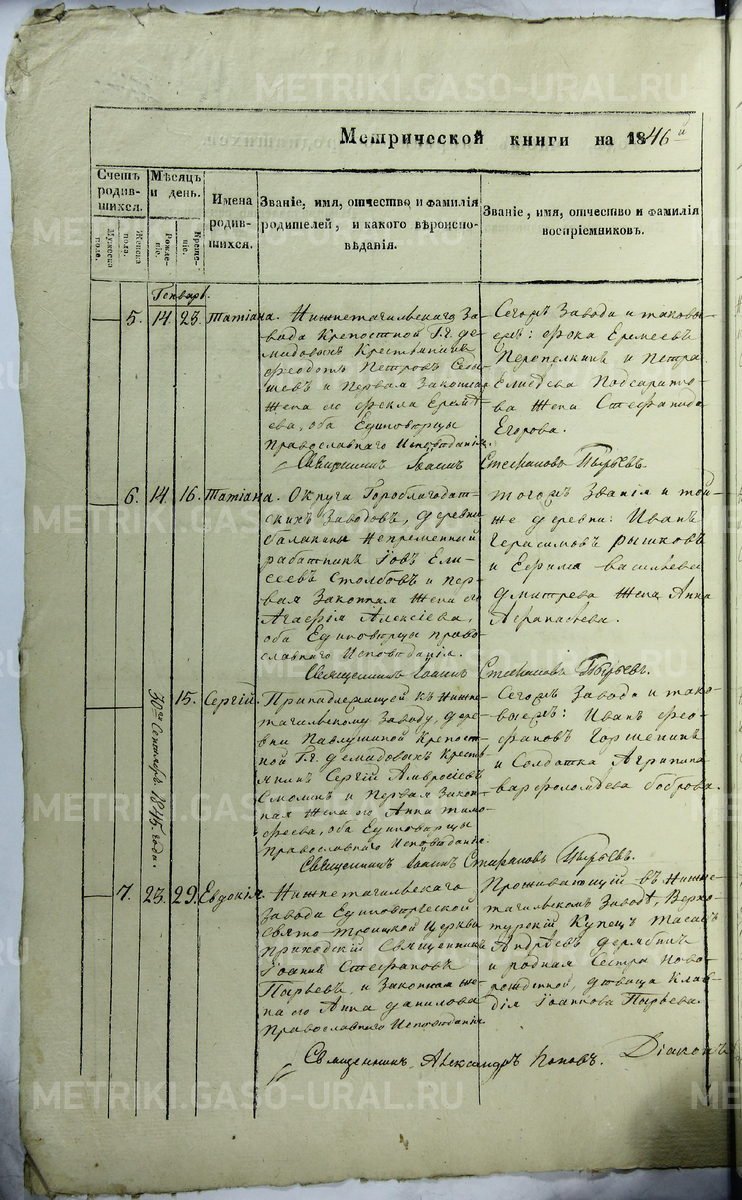 METRIKI.GASO-URAL.RU
Метрической книги на 1846й
Счетъ родив-шихся.
Мужеска пола.
Женска пола.
Мѣсяцъ и день.
Рожде-ніе.
Креще-ніе.
Имена родив-шихся.
Званіе, имя, отчество и фамилія
родителей, и какого вѣроиспо-
вѣданія.
Званіе, имя, отчество и фамилія
воспріемниковъ.
Генварь.
5. 14. 23. Татіана.
Нижнетагильскаго За-
вода Крепостной Г.г. Де-
мидовыхъ Крестьянинъ
Феодотъ Петровъ
и Первая Законная
Жена его Фекла Еремѣ-
ева, оба Единоверцы
Православнаго Исповѣданія.
Сегожъ Завода и таковы-
ежъ: Фока Еремеевъ
Перепелкинъ и Петра
Елисѣева
Жена Стефанида
Егорова.
Священникъ Іоаннъ Стефановъ Пырьевъ.
6. 14. 16. Татіана.
Округа Гороблагодат-
скихъ Заводовъ, деревни
Балакины Непременный
работникъ Іовъ Ели-
сеевъ Столбовъ и пер-
вая Законная Жена его
Агафія Алексіева,
оба Единоверцы право-
славнаго Исповѣданія.
тогожъ Званія и той-
же деревни: Иванъ
Герасимовъ Рышковъ
и Ефима Васильева
Дмитрева Жена Анна
Афанасьева.
Священникъ Іоаннъ Стефановъ Пырьевъ.
30го Сентября 1845. года.
15. Сергій.
Принадлежащей къ Нижне-
тагильскому Заводу, дере-
вни Павлушиной Крепост-
ной Г.г. Демидовыхъ Кресть-
янинъ Сергій Амвросіевъ
Смолинъ и Первая Закон-
ная Жена его Анна Тимо-
феева, оба Единоверцы
Православнаго Исповѣданія.
Сегожъ Завода и тако-
выежъ: Иванъ Фео-
фановъ Горшенинъ
и Солдатка Агрипина
Варфоломѣева Боброва.
Священникъ Іоаннъ Стефановъ Пырьевъ.
7. 23. 29. Евдокія.
Нижнетагильскаго
Завода Единоверческой
Свято-Троицкой Церкви
Приходскій Священникъ
Іоаннъ Стефановъ
Пырьевъ, и Законная же-
на его Анна Данилова
Православнаго Исповѣданія.
Проживающій въ Нижне-
тагильскомъ Заводѣ, Верхо-
турскій Купецъ
Андрѣевъ Дерябинъ
и родная Сестра Ново-
рожденной, дѣвица Клав-
дія Іоаннова Пырьева.
Священникъ Александръ Поповъ. Діаконъ